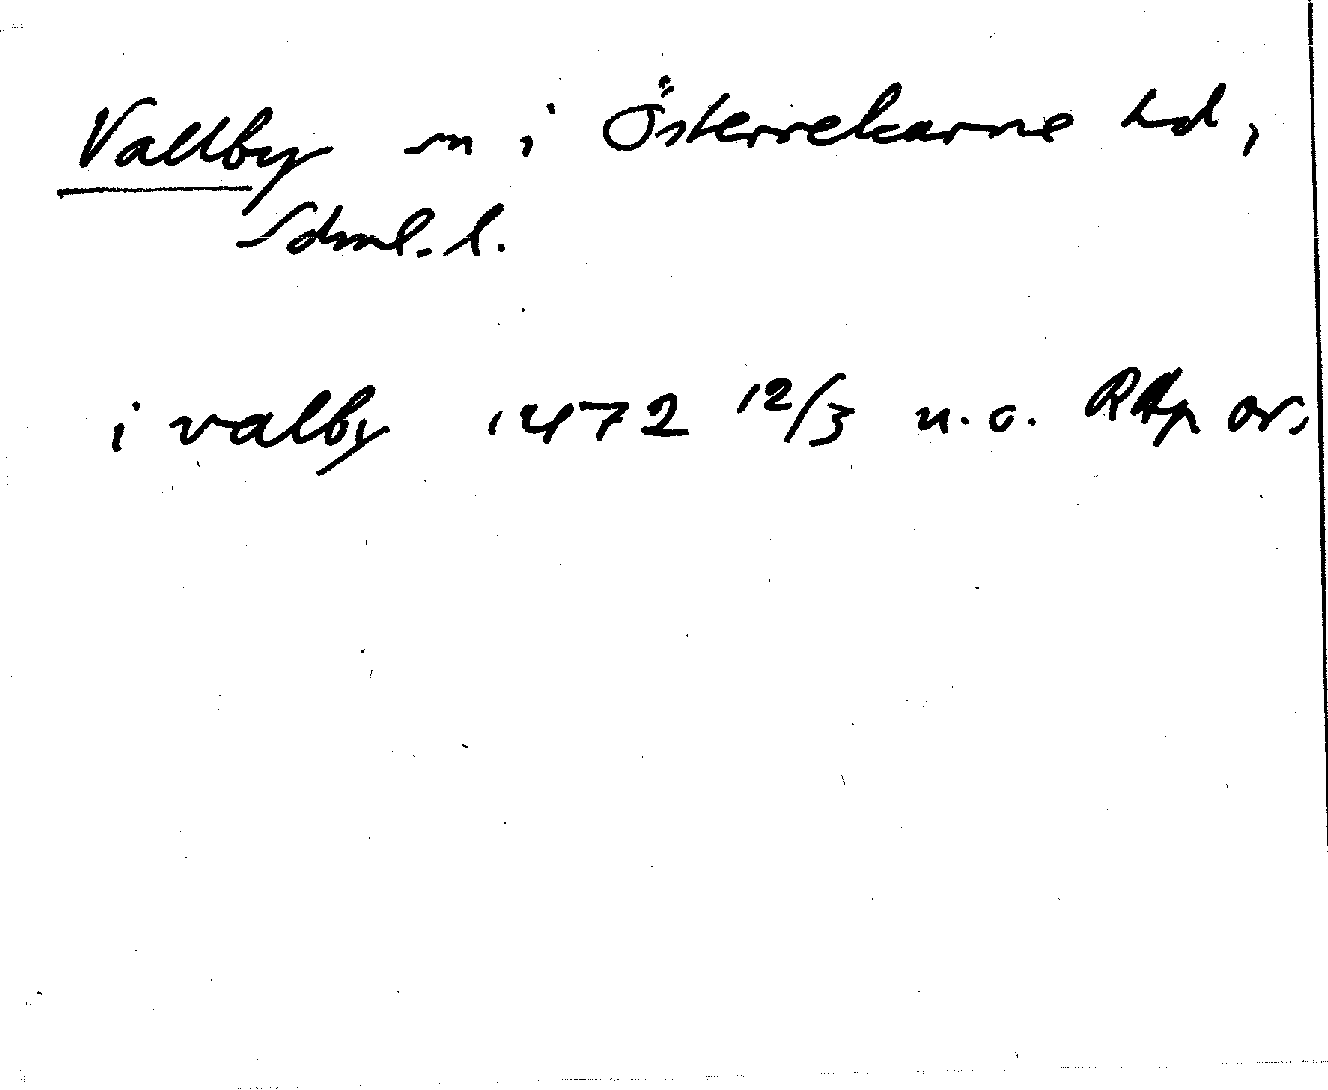 Vallby sn i Österrekarne hd,
Sdml. l.
i valby 1472 12/3 u.o. RAp or.